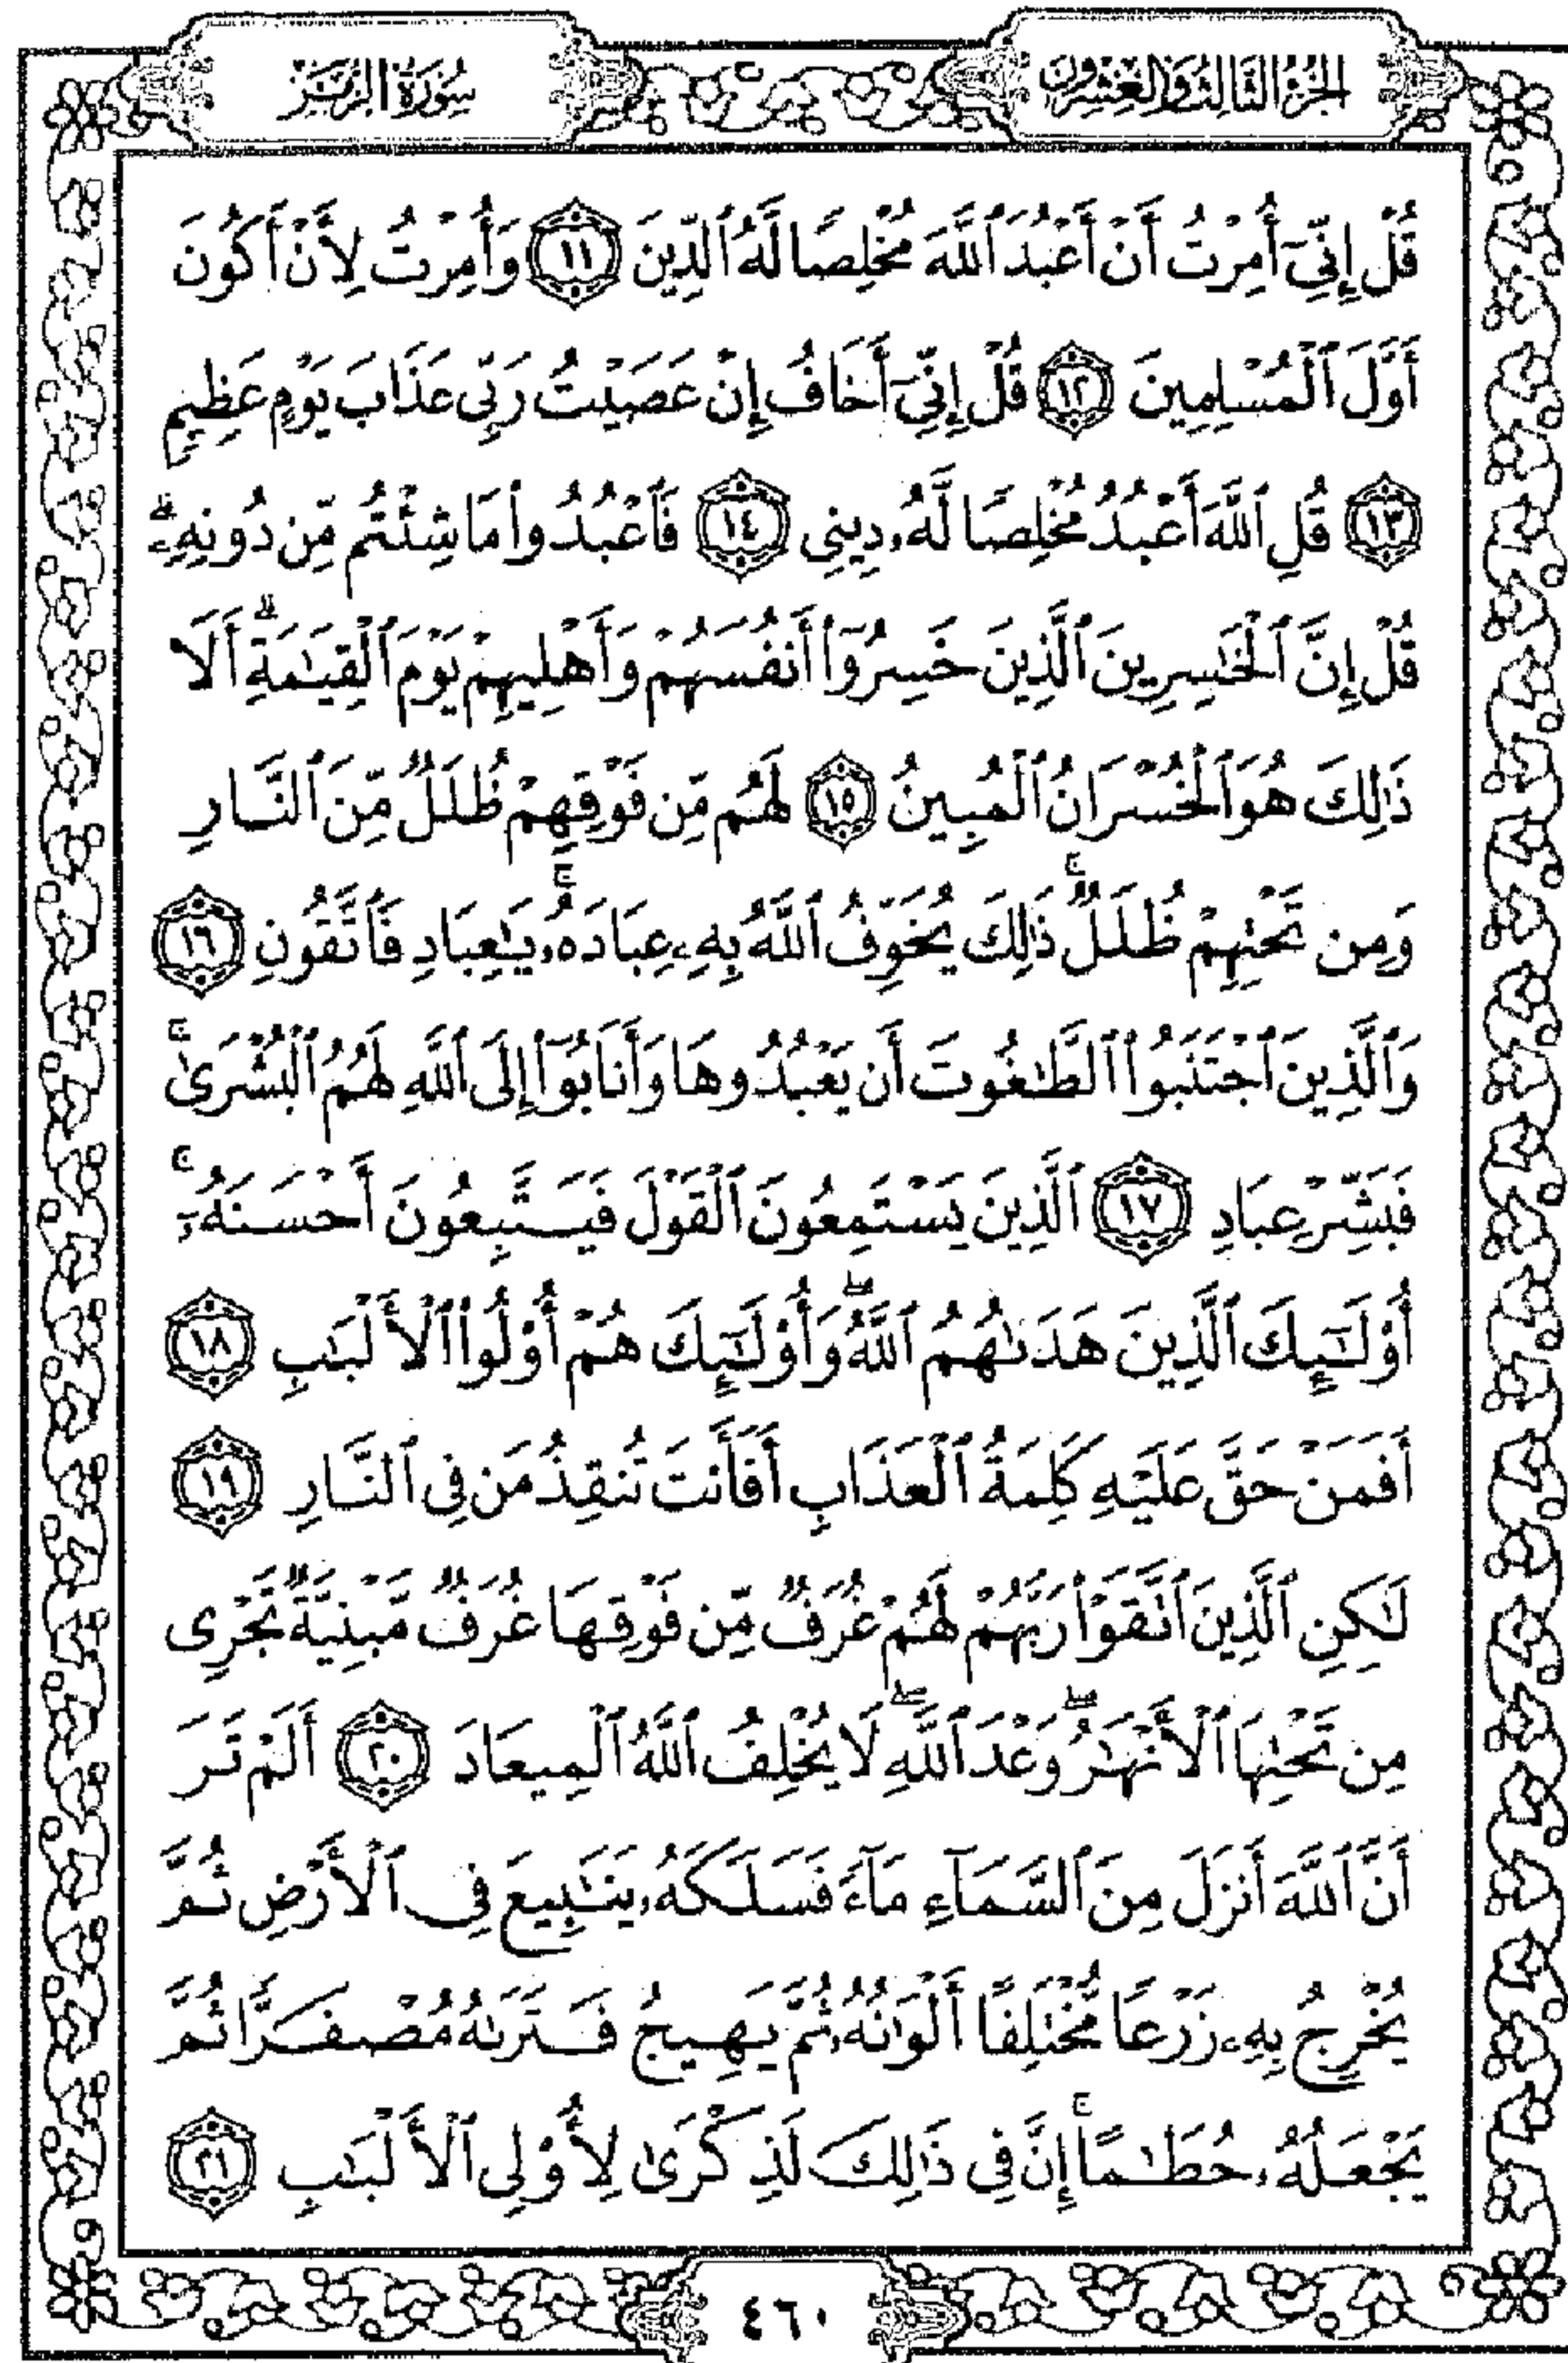 الجزء الثالث والعشرون
سورة الزمر
قُلْ إِنِّىٓ أُمِرْتُ أَنْ أَعْبُدَ ٱللَّهَ مُخْلِصًا لَّهُ ٱلدِّينَ ١١ وَأُمِرْتُ لِأَنْ أَكُونَ
أَوَّلَ ٱلْمُسْلِمِينَ ١٢ قُلْ إِنِّىٓ أَخَافُ إِنْ عَصَيْتُ رَبِّى عَذَابَ يَوْمٍ عَظِيمٍ
١٣ قُلِ ٱللَّهَ أَعْبُدُ مُخْلِصًا لَّهُۥ دِينِى ١٤ فَٱعْبُدُوا۟ مَا شِئْتُم مِّن دُونِهِۦ ۗ
قُلْ إِنَّ ٱلْخَٰسِرِينَ ٱلَّذِينَ خَسِرُوٓا۟ أَنفُسَهُمْ وَأَهْلِيهِمْ يَوْمَ ٱلْقِيَٰمَةِ ۗ أَلَا
ذَٰلِكَ هُوَ ٱلْخُسْرَانُ ٱلْمُبِينُ ١٥ لَهُم مِّن فَوْقِهِمْ ظُلَلٌ مِّنَ ٱلنَّارِ
وَمِن تَحْتِهِمْ ظُلَلٌ ۚ ذَٰلِكَ يُخَوِّفُ ٱللَّهُ بِهِۦ عِبَادَهُۥ ۚ يَٰعِبَادِ فَٱتَّقُونِ ١٦
وَٱلَّذِينَ ٱجْتَنَبُوا۟ ٱلطَّٰغُوتَ أَن يَعْبُدُوهَا وَأَنَابُوٓا۟ إِلَى ٱللَّهِ لَهُمُ ٱلْبُشْرَىٰ ۚ
فَبَشِّرْ عِبَادِ ١٧ ٱلَّذِينَ يَسْتَمِعُونَ ٱلْقَوْلَ فَيَتَّبِعُونَ أَحْسَنَهُۥٓ ۚ
أُو۟لَٰٓئِكَ ٱلَّذِينَ هَدَىٰهُمُ ٱللَّهُ ۖ وَأُو۟لَٰٓئِكَ هُمْ أُو۟لُوا۟ ٱلْأَلْبَٰبِ ١٨
أَفَمَنْ حَقَّ عَلَيْهِ كَلِمَةُ ٱلْعَذَابِ أَفَأَنتَ تُنقِذُ مَن فِى ٱلنَّارِ ١٩
لَٰكِنِ ٱلَّذِينَ ٱتَّقَوْا۟ رَبَّهُمْ لَهُمْ غُرَفٌ مِّن فَوْقِهَا غُرَفٌ مَّبْنِيَّةٌ ۗ تَجْرِى
مِن تَحْتِهَا ٱلْأَنْهَٰرُ ۖ وَعْدَ ٱللَّهِ ۖ لَا يُخْلِفُ ٱللَّهُ ٱلْمِيعَادَ ٢٠ أَلَمْ تَرَ
أَنَّ ٱللَّهَ أَنزَلَ مِنَ ٱلسَّمَآءِ مَآءً فَسَلَكَهُۥ يَنَٰبِيعَ فِى ٱلْأَرْضِ ثُمَّ
يُخْرِجُ بِهِۦ زَرْعًا مُّخْتَلِفًا أَلْوَٰنُهُۥ ثُمَّ يَهِيجُ فَتَرَىٰهُ مُصْفَرًّا ثُمَّ
يَجْعَلُهُۥ حُطَٰمًا ۚ إِنَّ فِى ذَٰلِكَ لَذِكْرَىٰ لِأُو۟لِى ٱلْأَلْبَٰبِ ٢١
٤٦٠